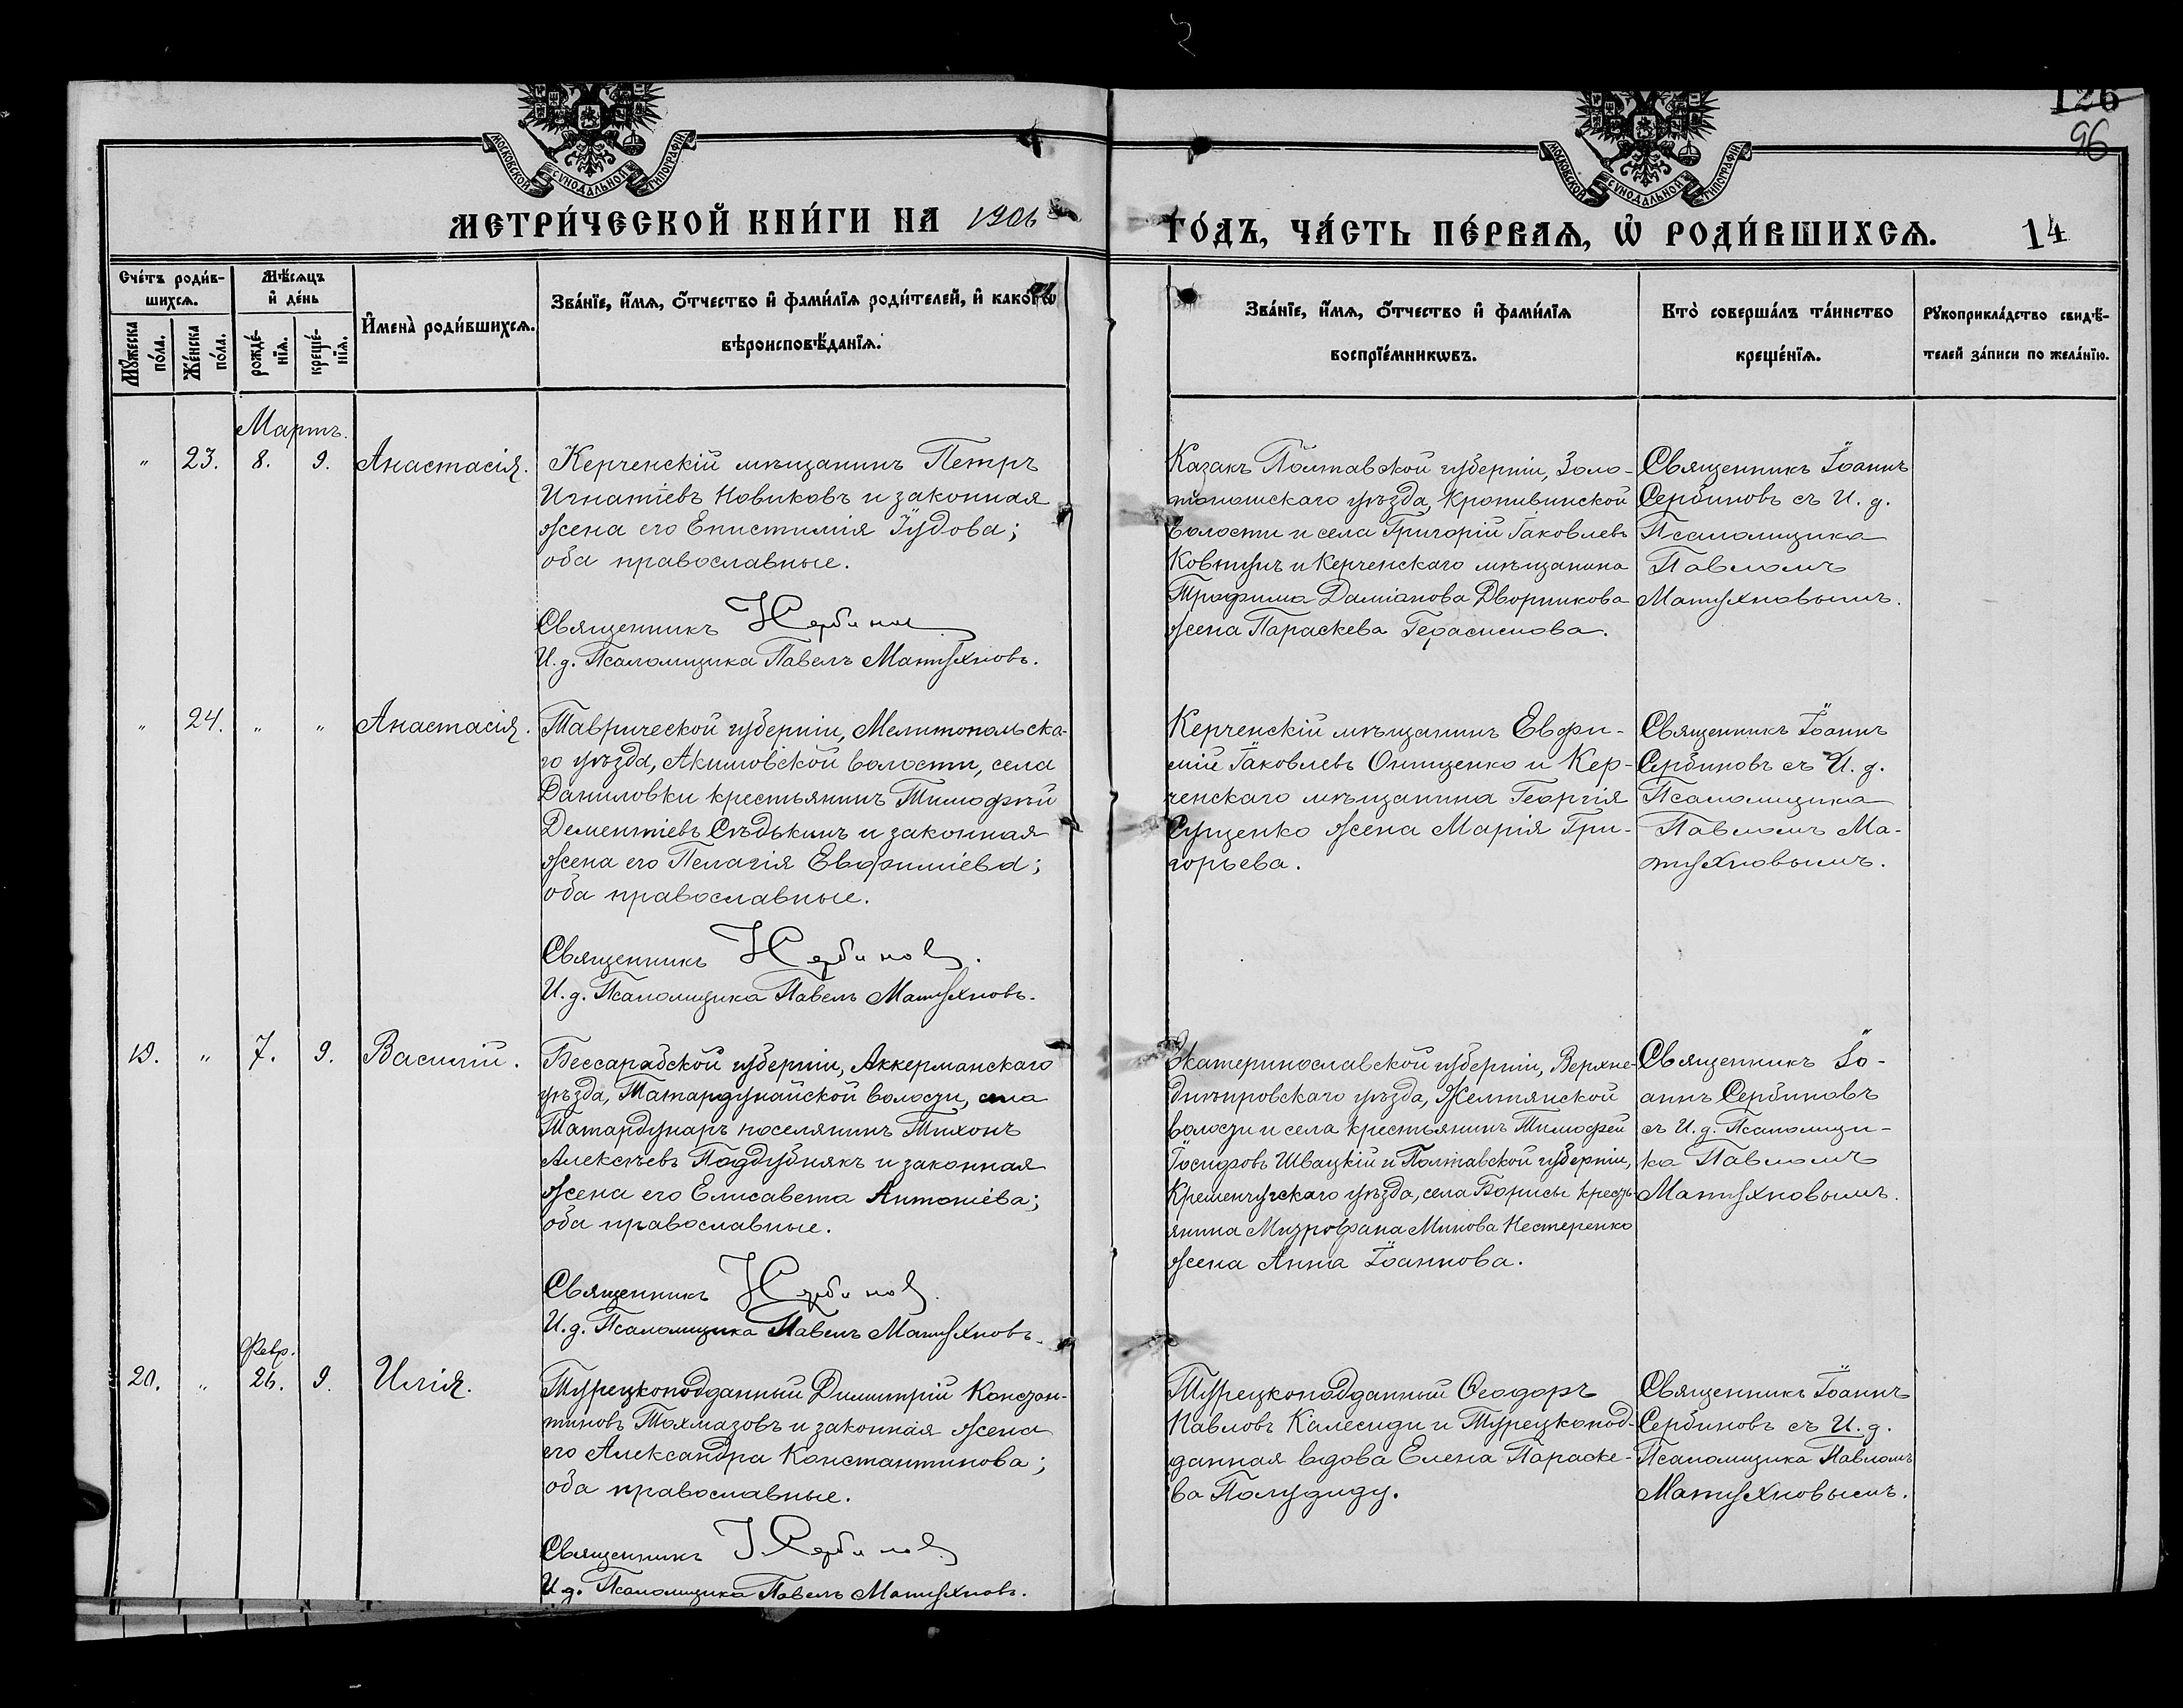 126
96
МОСКОВСКОЙ СУНОДАЛЬНОЙ ТИПОГРАФІИ
МОСКОВСКОЙ СУНОДАЛЬНОЙ ТИПОГРАФІИ
МЕТРИ́ЧЕСКОЙ КНИ́ГИ НА 1906
ГО́ДЪ, ЧА́СТЬ ПЕ́РВАѦ, Ѡ РОДИ́ВШИХСѦ. 14
Сче́тъ роди́в-
шихсѧ.
Мꙋ́жеска по́ла.
Же́нска по́ла.
Мѣ́сѧцъ
и де́нь
рожде́-
нїѧ.
креще́-
нїѧ.
И҆мена̀ роди́вшихсѧ.
Зва́нїе, и҆́мѧ, ѻ҆́тчество и҆ фами́лїѧ роди́телей, и҆ како́гѡ
вѣроисповѣ́данїѧ.
Зва́нїе, и҆́мѧ, ѻ҆́тчество и҆ фами́лїѧ
воспрїе́мникѡвъ.
Кто̀ соверша́лъ та́инство
креще́нїѧ.
Рꙋкоприкла́дство свидѣ́-
телей за́писи по жела́нїю.
Мартъ.
" 23. 8. 9. Анастасія.
Керченскій мѣщанинъ Петръ
Игнатіевъ Новиковъ и законная
жена его Епистимія Іудова;
оба православные.
Священникъ І Сербиновъ
И. д. Псаломщика Павелъ Матухновъ.
Казакъ Полтавской губерніи, Золо-
тоношскаго уѣзда, Кропивинской
волости и села Григорій Іаковлевъ
Ковтунъ и Керченскаго мѣщанина
Трофима Даміанова Дворникова
жена Параскева Герасимова.
Священникъ Іоаннъ
Сербиновъ съ И. д.
Псаломщика
Павломъ
Матухновымъ.
" 24. " " Анастасія.
Таврической губерніи, Мелитопольска-
го уѣзда, Акимовской волости, села
Даниловки крестьянинъ Тимофѣй
Дементіевъ Сѣдькинъ и законная
жена его Пелагія Евфиміева;
оба православные.
Священникъ І Сербиновъ.
И. д. Псаломщика Павелъ Матухновъ.
Керченскій мѣщанинъ Евфи-
мій Іаковлевъ Онищенко и Кер-
ченскаго мѣщанина Георгія
Сущенко жена Марія Гри-
горьева.
Священникъ Іоаннъ
Сербиновъ съ И. д.
Псаломщика
Павломъ Ма-
тухновымъ.
19. " 7. 9. Василій.
Бессарабской губерніи, Аккерманскаго
уѣзда, Татардунайской волости, села
Татардунаръ поселянинъ Тихонъ
Алексѣевъ Поддубнякъ и законная
жена его Елисавета Антоніева;
оба православные.
Священникъ І Сербиновъ.
И. д. Псаломщика Павелъ Матухновъ.
Екатеринославской губерніи, Верхне-
днѣпровскаго уѣзда, Желтянской
волости и села крестьянинъ Тимофей
Іосифовъ Швацкій и Полтавской губерніи,
Кременчугскаго уѣзда, села Борисы кресть-
янина Митрофана Минова Нестеренко
жена Анна Іоаннова.
Священникъ Іо-
аннъ Сербиновъ
съ И. д. Псаломщи-
ка Павломъ
Матухновымъ.
Февр.
20. " 26. 9. Илія.
Турецкоподданный Димитрій Констан-
тиновъ Тахмазовъ и законная жена
его Александра Константинова;
оба православные.
Священникъ І Сербиновъ
И. д. Псаломщика Павелъ Матухновъ.
Турецкоподданный Ѳеодоръ
Павловъ Калесиди и Турецкопод-
данная вдова Елена Параске-
ва Полудиду.
Священникъ Іоаннъ
Сербиновъ съ И. д.
Псаломщика Павломъ
Матухновымъ.